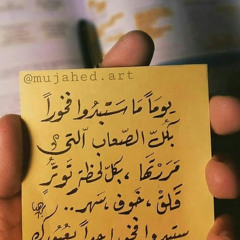 @mujahed.art
يوماً ما ستبدُوا فخوراً
بكُلّ الصّعاب الّتي
مَرَرْتَها ، بكلّ لحظة تَوتّرٍ
قَلَقْ ، خَوف ، سَهر ..
ستبدوا فخوراً جداً بعُبُورك